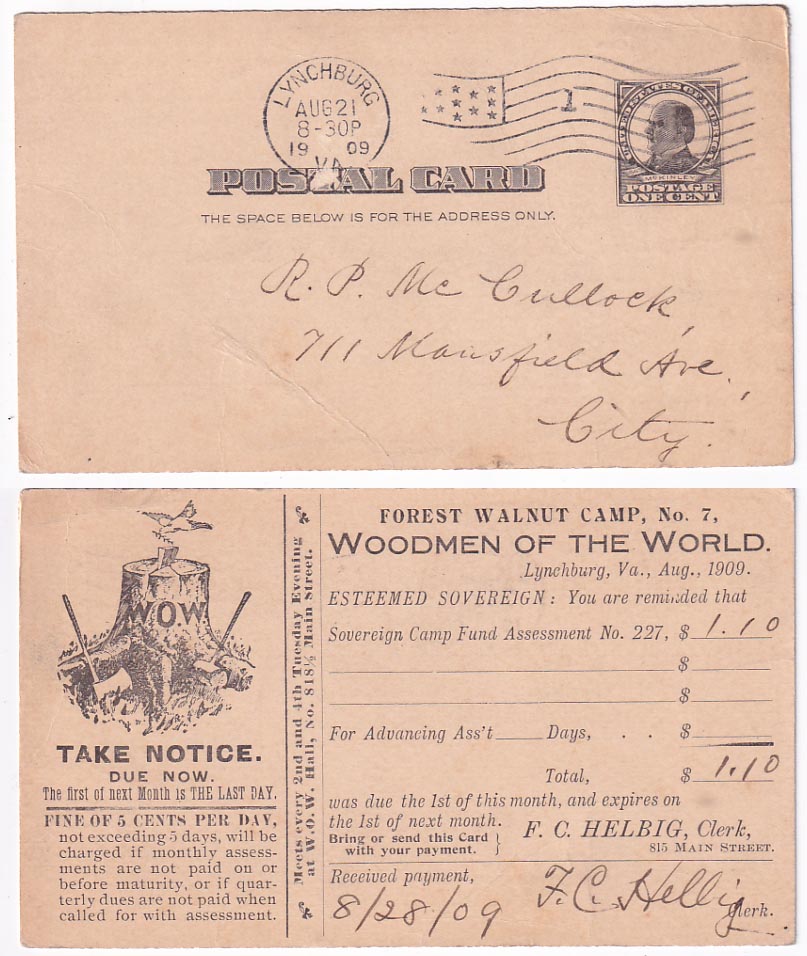 LYNCHBURG
AUG 21
8-30P
19 09
VA.
1
UNITED STATES OF AMERICA
McKINLEY
POSTAGE
ONE CENT
POSTAL CARD
THE SPACE BELOW IS FOR THE ADDRESS ONLY.
R. P. Mc Cullock,
711 Mansfield Ave.,
City.
W.O.W
TAKE NOTICE.
DUE NOW.
The first of next Month is THE LAST DAY.
FINE OF 5 CENTS PER DAY,
not exceeding 5 days, will be
charged if monthly assess-
ments are not paid on or
before maturity, or if quar-
terly dues are not paid when
called for with assessment.
Meets every 2nd and 4th Tuesday Evening
at W.O.W. Hall, No. 818½ Main Street.
FOREST WALNUT CAMP, No. 7,
WOODMEN OF THE WORLD.
Lynchburg, Va., Aug., 1909.
ESTEEMED SOVEREIGN: You are reminded that
Sovereign Camp Fund Assessment No. 227, $ 1.10
$
$
For Advancing Ass't Days, . . $
Total, $ 1.10
was due the 1st of this month, and expires on
the 1st of next month.
Bring or send this Card
with your payment.
F. C. HELBIG, Clerk,
815 MAIN STREET.
Received payment,
8/28/09 F. C. Helbig Clerk.